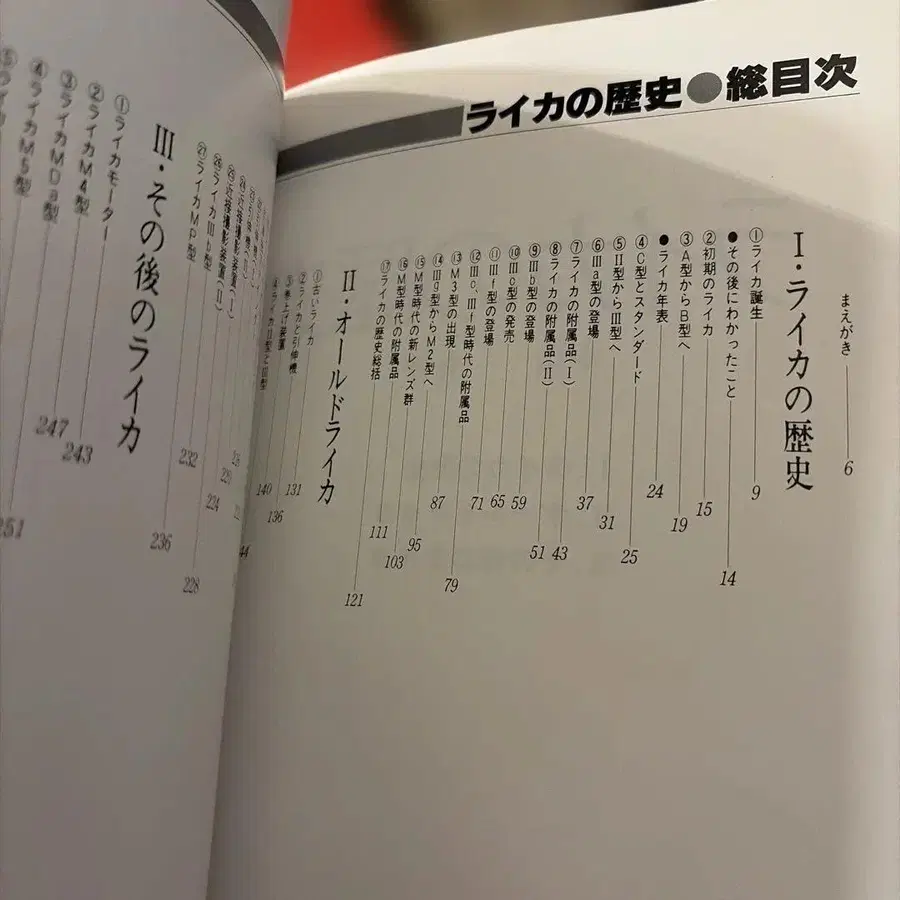 ライカの歴史●総目次
まえがき 6
I・ライカの歴史
①ライカ誕生 9
●その後にわかったこと 14
②初期のライカ 15
③A型からB型へ 19
●ライカ年表 24
④C型とスタンダード 25
⑤II型からIII型へ 31
⑥IIIa型の登場 37
⑦ライカの附属品(I) 43
⑧ライカの附属品(II) 51
⑨IIIb型の登場 59
⑩IIIc型の発売 65
⑪IIIf型の登場 71
⑫IIIc、IIIf型時代の附属品 79
⑬M3型の出現 87
⑭IIIg型からM2型へ 95
⑮M型時代の新レンズ群 103
⑯M型時代の附属品 111
⑰ライカの歴史総括 121
II・オールドライカ
①古いライカ 131
②ライカと引伸機 136
③巻上げ装置 140
④ライカII型とIII型 44
㉔近接撮影装置(I) 220
㉕近接撮影装置(II) 224
㉖ライカIIIb型 228
㉗ライカMP型 232
III・その後のライカ
①ライカモーター 236
②ライカM4型 243
③ライカMDa型 247
④ライカM5型 251